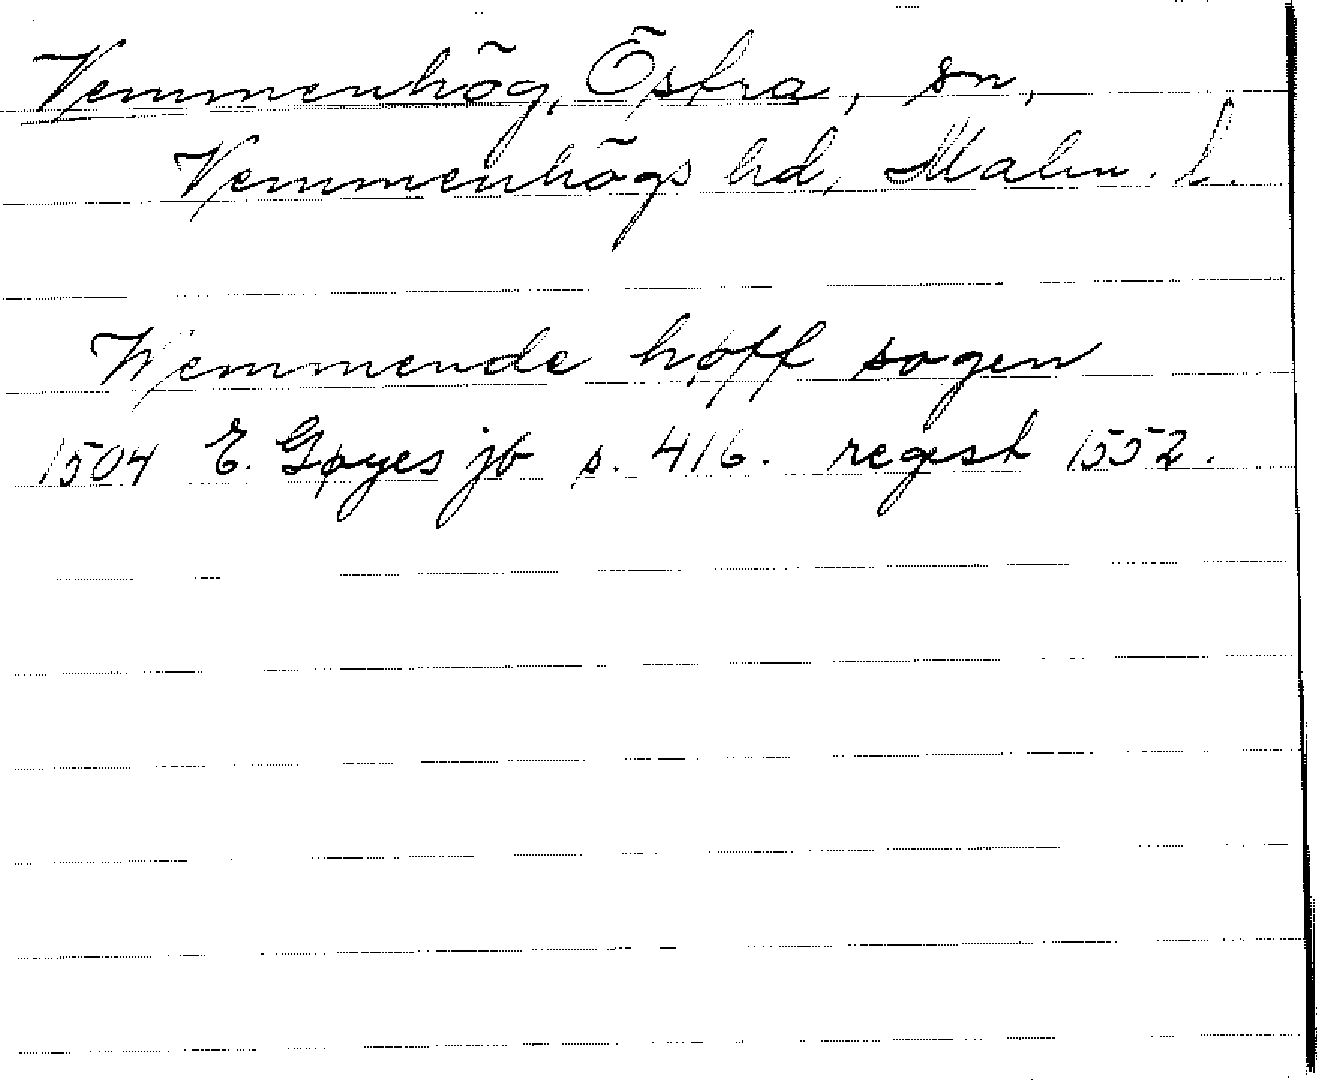 Vemmenhög, Östra, sn,
Vemmenhögs hd, Malm. l.
Wemmende hoff sogen
1504 E. Gøyes jb s. 416. regist 1552.